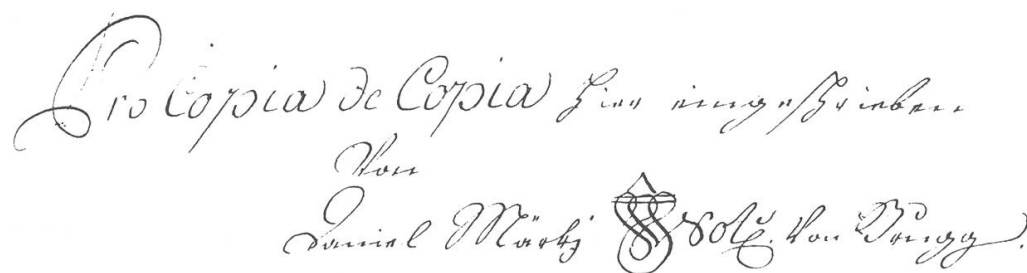 Pro Copia de Copia hier eingeschrieben
Von
Daniel Märki Not. von Brugg.